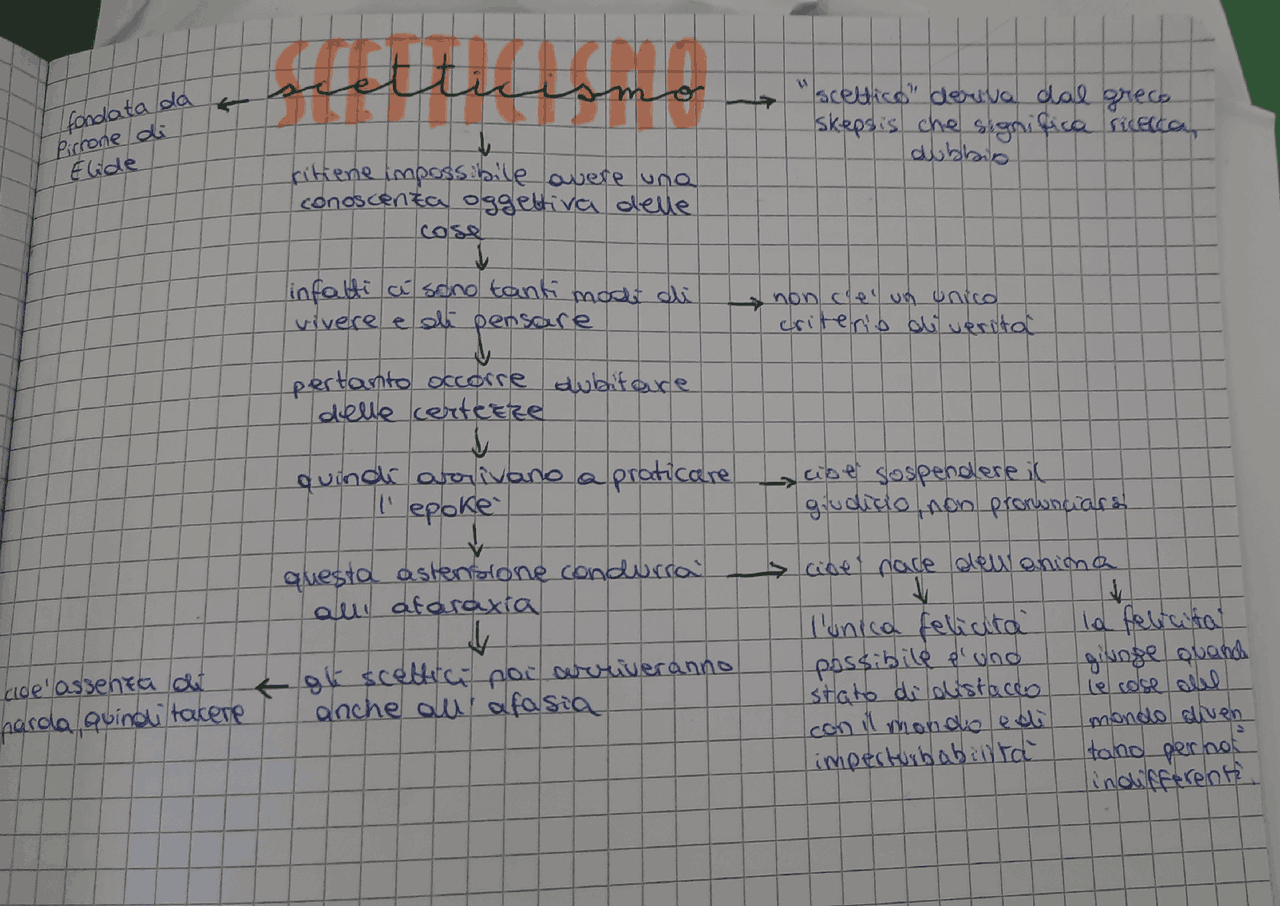 SCETTICISMO
scetticismo
fondata da
Pirrone di
Elide
"scettico" deriva dal greco
skepsis che significa ricerca,
dubbio
ritiene impossibile avere una
conoscenza oggettiva delle
cose
infatti ci sono tanti modi di
vivere e di pensare
non c'è un unico
criterio di verità
pertanto occorre dubitare
delle certezze
quindi arrivano a praticare
l'epokè
cioè sospendere il
giudizio, non pronunciarsi
questa astensione condurrà
all'ataraxia
cioè pace dell'anima
l'unica felicità
possibile è uno
stato di distacco
con il mondo e di
imperturbabilità
la felicità
giunge quando
le cose del
mondo diven
tano per noi
indifferenti.
gli scettici poi arriveranno
anche all'afasia
cioè assenza di
parola, quindi tacere